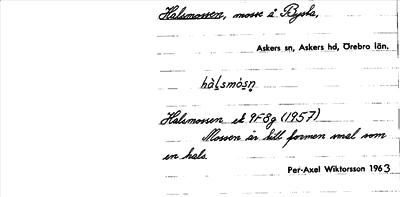 Halsmossen, mosse å Bysta,
Askers sn, Askers hd, Örebro län.
hàl̥smòsn̥
Halsmossen ek 9F8g (1957)
Mossen är till formen smal som
en hals.
Per-Axel Wiktorsson 1963